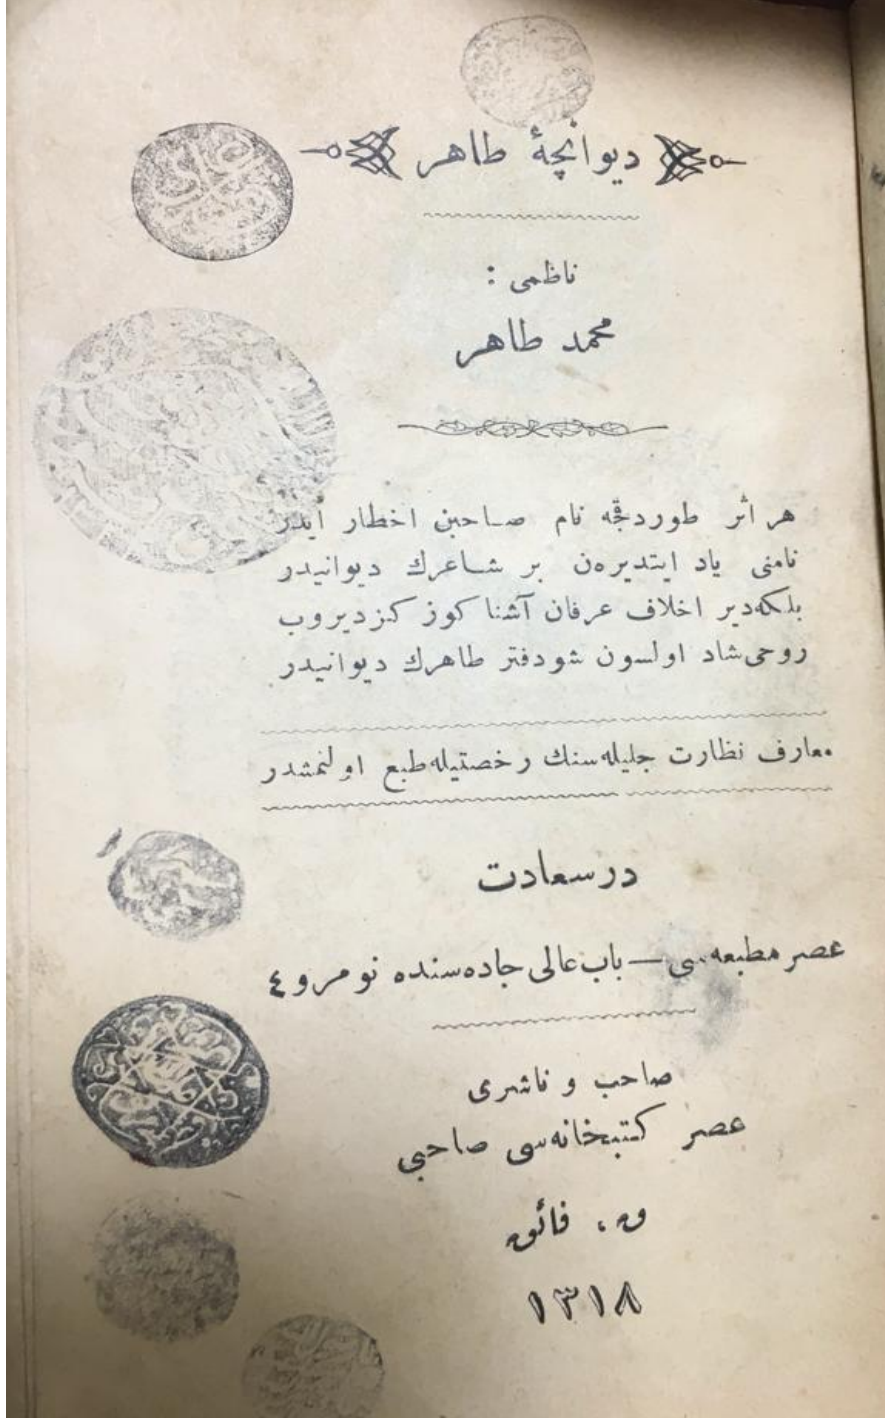 ديوانچهٔ طاهر
ناظمى :
محمد طاهر
هر اثر طوردقجه نام صاحبن اخطار ايدر
نامنى ياد ايتديره‌ن بر شاعرك ديوانيدر
بلكه‌دير اخلاف عرفان آشنا كوز كزديروب
روحى شاد اولسون شو دفتر طاهرك ديوانيدر
معارف نظارت جليله‌سنك رخصتيله طبع اولنمشدر
درسعادت
عصر مطبعه‌سى — باب عالى جاده‌سنده نومرو ٤
صاحب و ناشرى
عصر كتبخانه‌سى صاحبى
فائق
١٣١٨